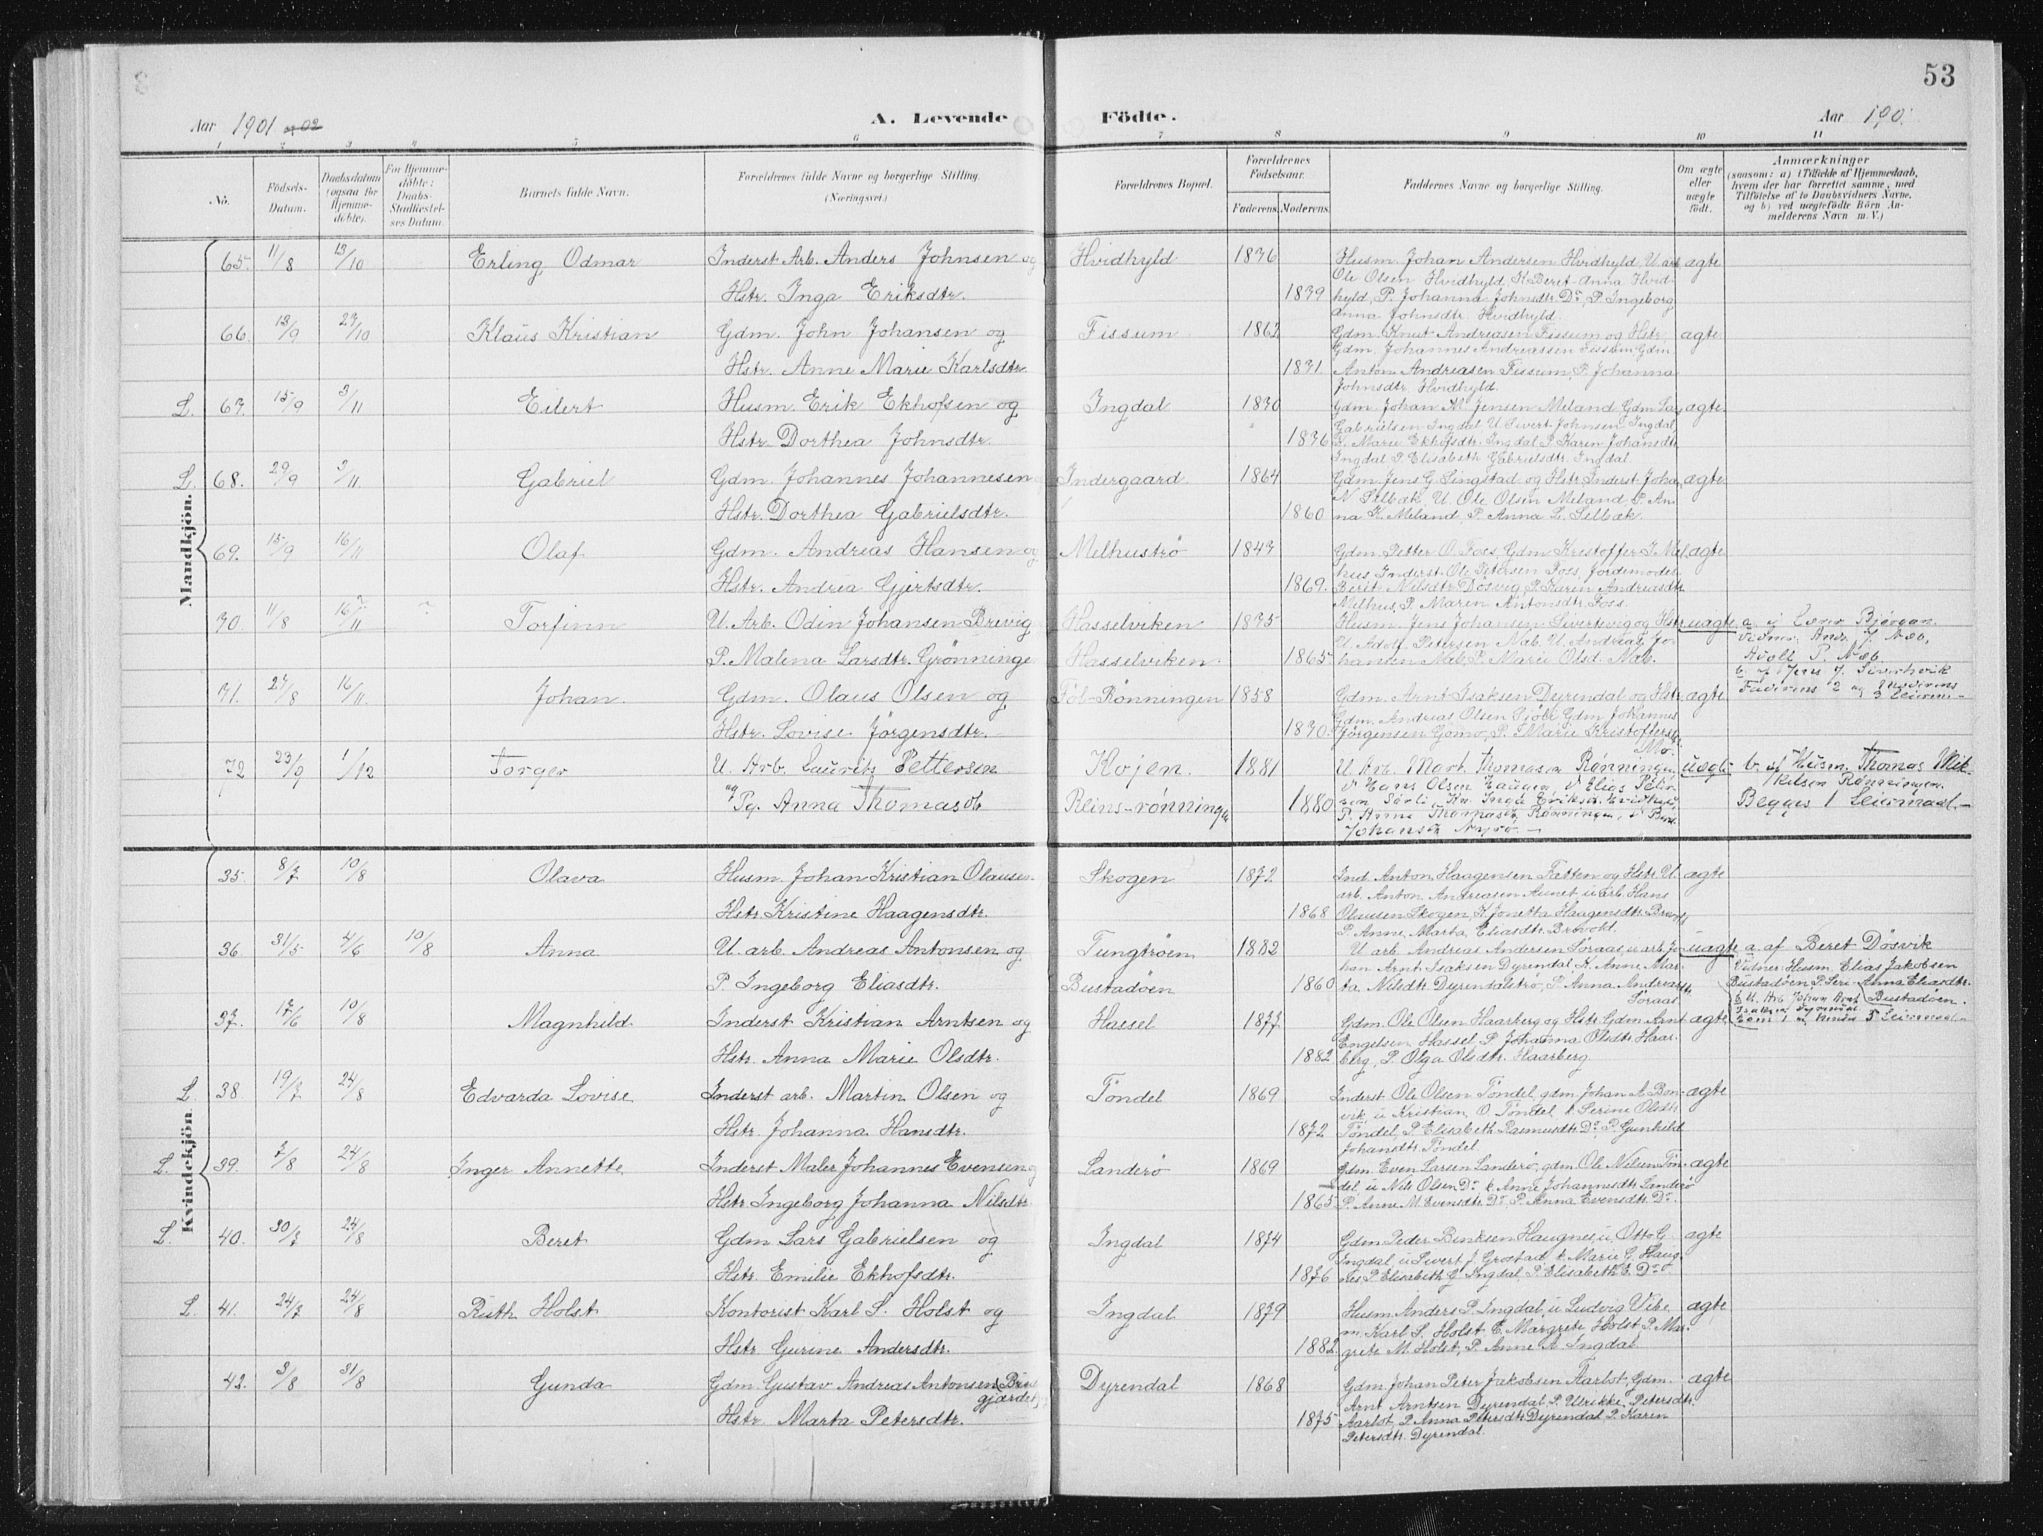 53
Aar 1901 og 02
A. Levende Födte.
Aar 190
1 2 3 4 5 6 7 8 9 10 11
No.
Födsels-Datum.
Daabsdatum (ogsaa for Hjemmedöbte).
For Hjemmedöbte: Daabs-Stadfæstelses Datum.
Barnets fulde Navn.
Forældrenes fulde Navne og borgerlige Stilling. (Næringsvei.)
Forældrenes Bopæl.
Forældrenes Födselsaar.
Faderens. Moderens.
Faddernes Navne og borgerlige Stilling.
Om ægte eller uægte födt.
Anmærkninger
(saasom: a) i Tilfælde af Hjemmedaab, hvem der har forrettet samme, med Tilföielse af to Daabsvidners Navne, og b) ved uægtefödte Börn Anmelderens Navn m. V.)
Mandkjön.
65. 11/8 13/10 Erling Odmar Inderst Arb. Anders Johnsen og Hvidhyld 1836 Husm. Johan Andersen Hvidhyld, U. arb. ægte
Ole Olsen Hvidhyld, K. Beret-Anna Hvid-
Hstr. Inga Eriksdtr. 1839 hyld, P. Johanna Johnsdtr. Do, P. Ingeborg
Anna Johnsdtr. Hvidhyld.
66. 13/9 27/10 Klaus Kristian Gdm. John Johansen og Fissum 1862 Gdm. Knut Andreasen Fissum og Hstr. ægte
Gdm. Johannes Andreassen Fissum Gdm
Hstr. Anne Marie Karlsdtr. 1831. Anton Andreasen Fissum, P. Johanna
Johnsdtr. Hvidhyld.
L. 67. 15/9 3/11 Eilert Husm. Erik Ekhofsen og Ingdal 1830 Gdm. Johan M. Jensen Meland Gdm La ægte
Gabrielsen Ingdal U Sivert Johnsen Ingdal,
Hstr. Dorthea Johnsdtr. 1836 K. Marie Ekhofsdtr. Ingdal P. Karen Johansdtr
Ingdal P. Elisabeth Gabrielsdtr. Ingdal
L. 68. 29/9 3/11 Gabriel Gdm. Johannes Johannesen Indergaard 1864 Gdm. Jens G. Singstad og Hstr. Inderst Joha ægte
N. Selbæk, U. Ole Olsen Meland, P. An-
Hstr. Dorthea Gabrielsdtr. 1860 na K. Meland, P. Anna L. Selbæk.
69. 15/9 16/11 Olaf Gdm. Andreas Hansen og Melhuströ 1843 Gdm. Petter O. Foss, Gdm Krestoffer I. Mel ægte
hus Inderst Ole Petersen Foss, Jordemoder
Hstr. Andrea Gjertsdtr. 1869. Berit Nilsdtr Dösvig, P. Karen Andreasdtr
Melhus, P. Maren Antonsdtr. Foss.
70. 11/8 16/11 Torfinn U. Arb. Odin Johansen Brevig Hasselviken 1835 Husm. Jens Johansen Sivertsvig og Hstr uægte
U. Adolf Petersen Næb, U. Andreas Jo-
P. Malena Larsdtr. Grönninge Hasselviken. 1865 hansen Næb, P. Marie Olsd. Næb.
Vidner: Andr. J. Næb,
Adolf P. Næb.
71. 27/8 16/11. Johan. Gdm. Olaus Olsen og Röl-Rönningen 1858 Gdm. Arnt Isaksen Dyrendal og Hstr ægte
Gdm. Andreas Olsen Gjölö Gdm Johannes
Hstr. Lovise Jörgensdtr. 1830. Jörgensen Gomo, P. Marie Kristoffersdtr
Mo.
72 23/9 1/12 Torger U. Arb. Laurits Pettersen Kojen. 1881 U. Arb. Mart. Thomasen Rønningen uægte b. af Husm. Thomas Mik-
kelsen Rønningen.
og Pg. Anna Thomasdtr Reins-rönningen 1880
Begges 1 Leiermaal.
Kvindekjön.
35. 8/7 10/8 Olava Husm. Johan Kristian Olausen Skogen 1872 Ind. Anton Haagensen Fatten og Hstr. U. ægte
arb. Anton Andreasen Aunet u. arb. Hans
Hstr. Kristine Haagensdtr. 1868 Olausen Skogen, K. Jonetta Haagensdtr Brands
P. Anne, Marta, Eliasdtr. Brovold.
36. 31/5 4/6 10/8 Anna U. arb. Andreas Antonsen og Tungtröen 1882 U. arb. Andreas Andersen Söraas, u. arb. Jo- uægte a. af Beret Dösvik
han Arnt Isaksen Dyrendal, K. Anne Mar- Vidner: Husm. Elias Jakobsen
P. Ingeborg Eliasdtr. Bustadöen 1860 ta. Nilsdtr. Dyrendalströ, P. Anna Andreasdtr Bustadöen P. Seri-Anna Eliasdtr.
Söraas Bustadöen.
37. 17/6 10/8 Magnhild. Inderst Kristian Arntsen og Hassel 1877 Gdm. Ole Olsen Haarberg og Hstr. Gdm. Arnt ægte
Engelsen Hassel, P. Johanna Olsdtr. Haar-
Hstr. Anna Marie Olsdtr. 1882 berg, P. Olga Olsdtr. Haarberg
L. 38. 19/7 24/8 Edvarda Lovise Inderst arb. Martin Olsen og Töndel 1869 Inderst Ole Olsen Töndel, gdm. Johan A. Bon- ægte
vik, u. Kristian O. Töndel, k. Serine Olsdtr
Hstr. Johanna Hansdtr. 1872 Töndel, P. Elisabeth Rasmusdtr. Do P. Gunhild
Johansdtr. Töndel
L. 39. 7/8 24/8 Inger Annette Inderst Maler Johannes Evensen og Landerö 1869 Gdm. Even Larsen Landerö, gdm. Ole Nilsen Tön- ægte
del, u. Nils Olsen Do. k. Anne Johannesdtr. Landerö
Hstr. Ingeborg Johanna Nilsdtr 1865 P. Anne M. Evensdtr. Do. P. Anna Evensdtr. Do.
L. 40. 30/7 24/8 Beret Gdm Lars Gabrielsen og Ingdal 1874 Gdm Peder Benksen Haugnes, u Otto G. ægte
Ingdal, u Sivert J. Grostad, k. Marie G. Haug-
Hstr. Emilie Ekhofsdtr. 1876 nes P. Elisabeth G. Ingdal, P. Elisabeth E. Do
L. 41. 24/7 24/8 Ruth Holst Kontorist Karl S. Holst og Ingdal 1879 Husm. Anders P. Ingdal, u Ludvig Vibe ægte
m. Karl S. Holst, E. Margrete Holst, P. Mar-
Hstr. Gurine Andersdtr. 1882. grete M. Holst, P. Anne A. Ingdal.
42. 3/8 31/8 Gunda Gdm. Gustav Andreas Antonsen Dyrendal 1868 Gdm. Johan Peter Jakobsen Aarlot, Gdm. ægte
Arnt Arntsen Dyrendal, P. Ulrikke Petersdtr.
Hstr. Marta Petersdtr. 1875 Aarlot, P. Anna Petersdtr Dyrendal P. Karen
Petersdtr. Dyrendal.